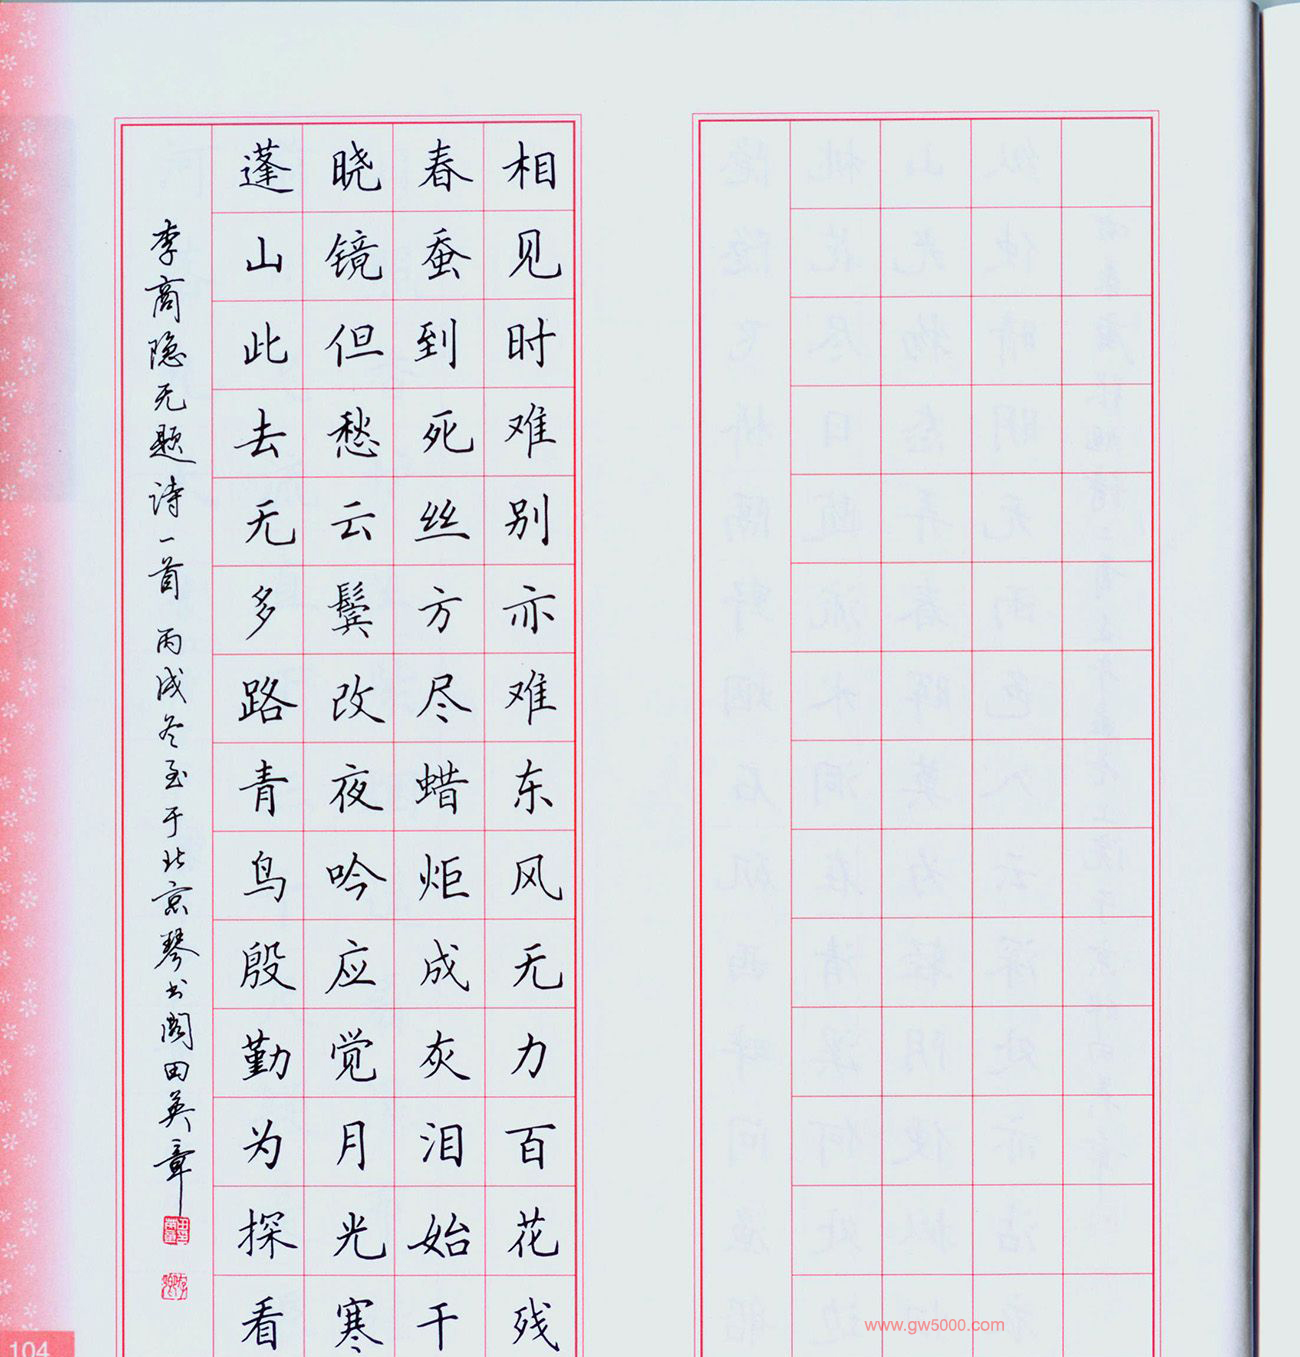 相见时难别亦难东风无力百花残
春蚕到死丝方尽蜡炬成灰泪始干
晓镜但愁云鬓改夜吟应觉月光寒
蓬山此去无多路青鸟殷勤为探看
李商隐无题诗一首 丙戌冬至于北京琴书阁田英章
www.gw5000.com
104